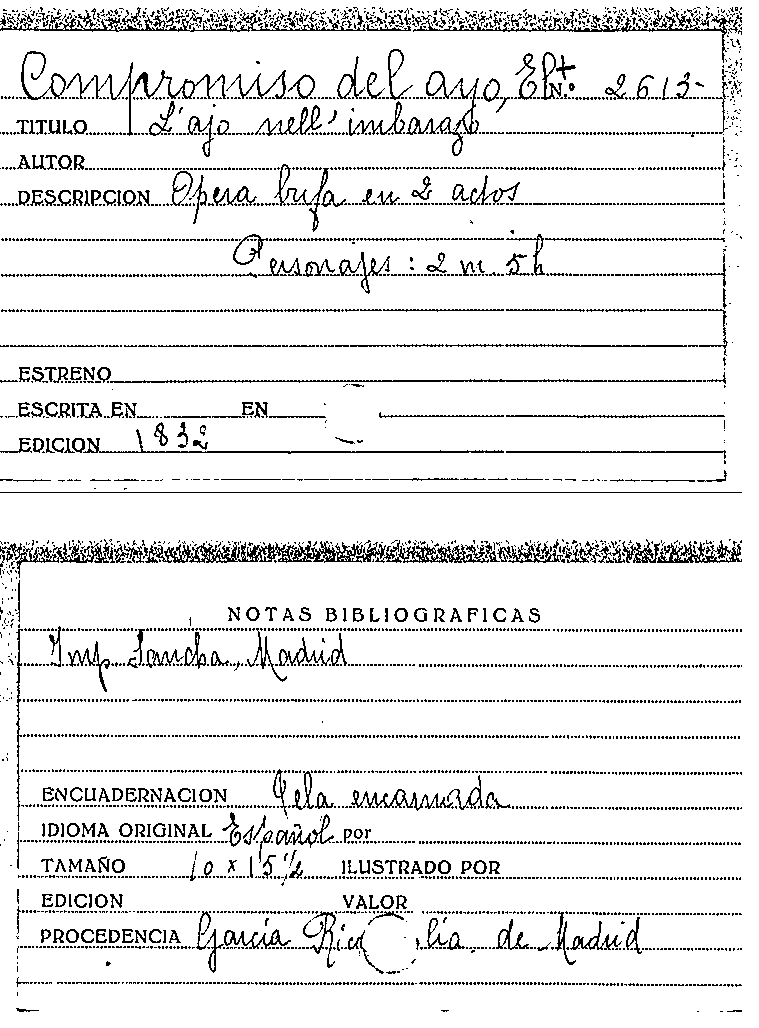 Compromiso del ayo, El + N.º 2613-
TITULO L'ajo nell' imbarazo
AUTOR
DESCRIPCION Opera bufa en 2 actos
Personajes : 2 m. 5 h
ESTRENO
ESCRITA EN EN
EDICION 1832
NOTAS BIBLIOGRAFICAS
Imp. Sancha, Madrid
ENCUADERNACION Tela encarnada
IDIOMA ORIGINAL Español por
TAMAÑO 10 x 15 ½ ILUSTRADO POR
EDICION VALOR
PROCEDENCIA García Rico lía. de Madrid